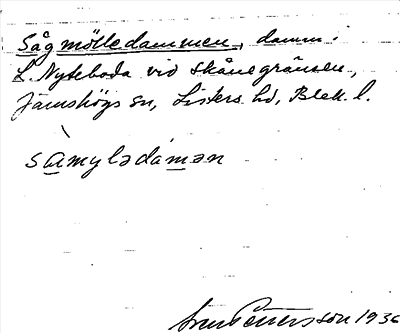 Sågmölledammen, damm i
L. Nyteboda vid Skånegränsen,
Jämshögs sn, Listers hd, Blek. l.
såmylədamən
Pettersson 1936